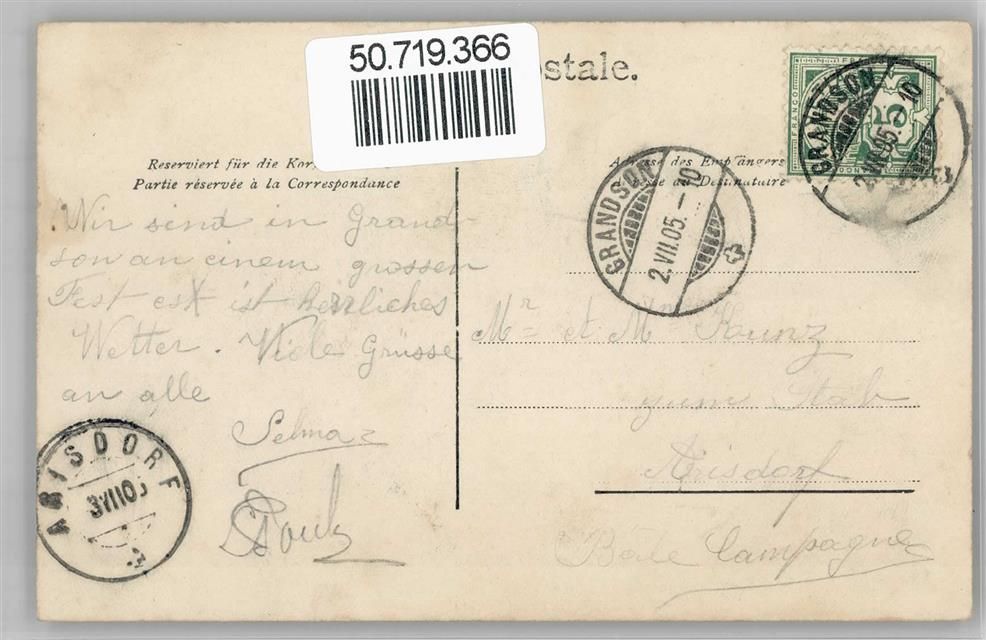 50.719.366
ostale.
Reserviert für die Kor
Partie réservée à la Correspondance
Adresse des Empfängers
esse du Destinataire
FRANCO
5
GRANDSON
2.VII.05.-10
GRANDSON
2.VII.05.-10
Wir send in Grand-
son an einem grossen
Fest est ist herrliches
Wetter. Viele Grüsse
an alle
Selma
Mr et Mme Kunz
zum Stab
Arisdorf
Bâle Campagne
ARISDORF
3 VII 05